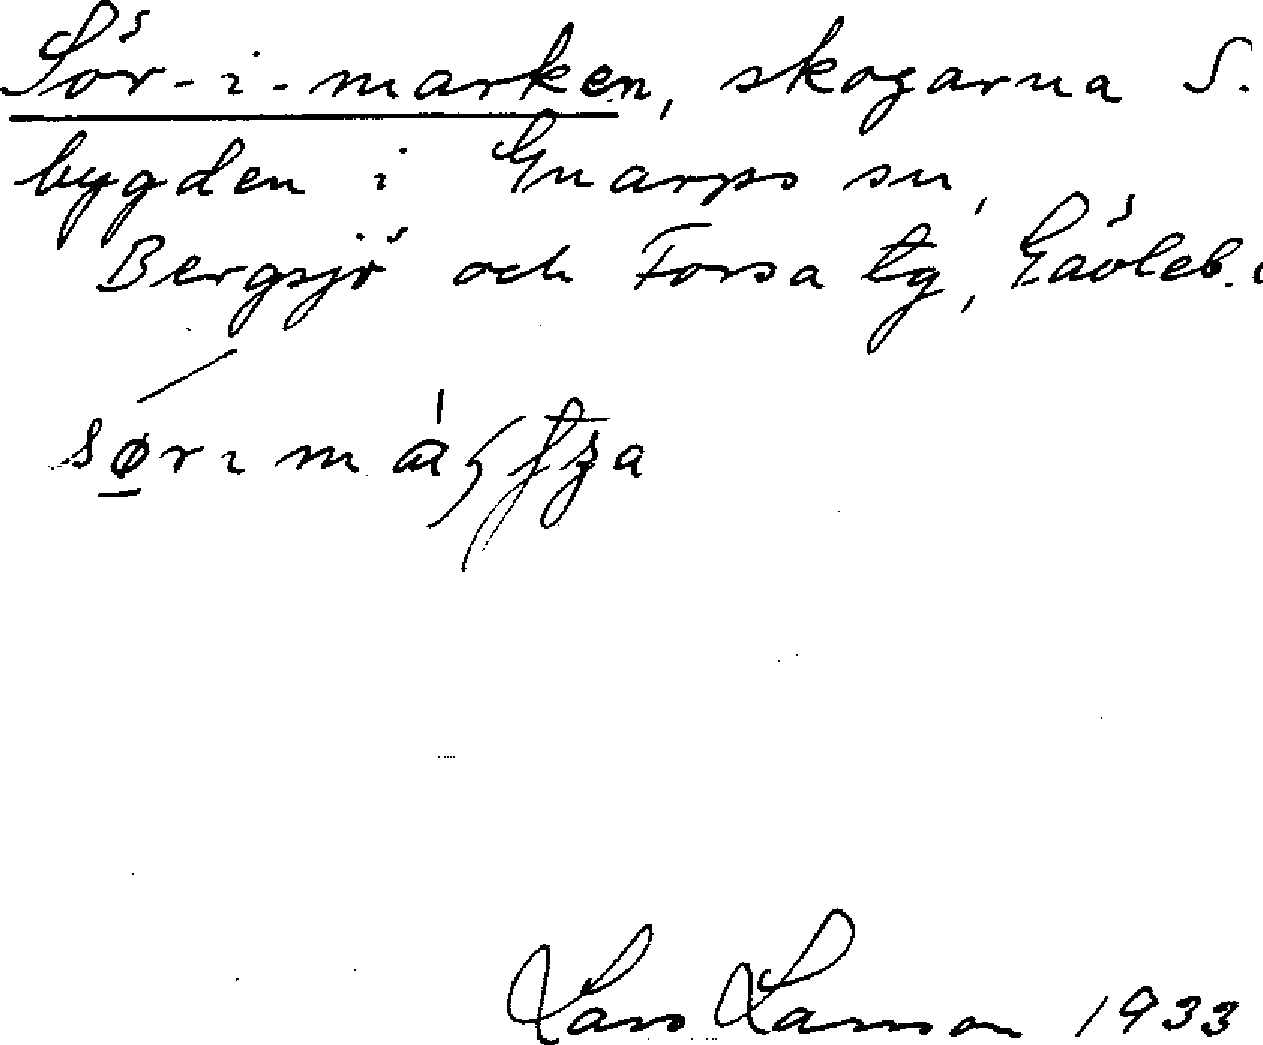 Sör-i-marken, skogarna S.
bygden i Gnarps sn,
Bergsjö och Forsa tg, Gävleb.
Lars Larsson 1933